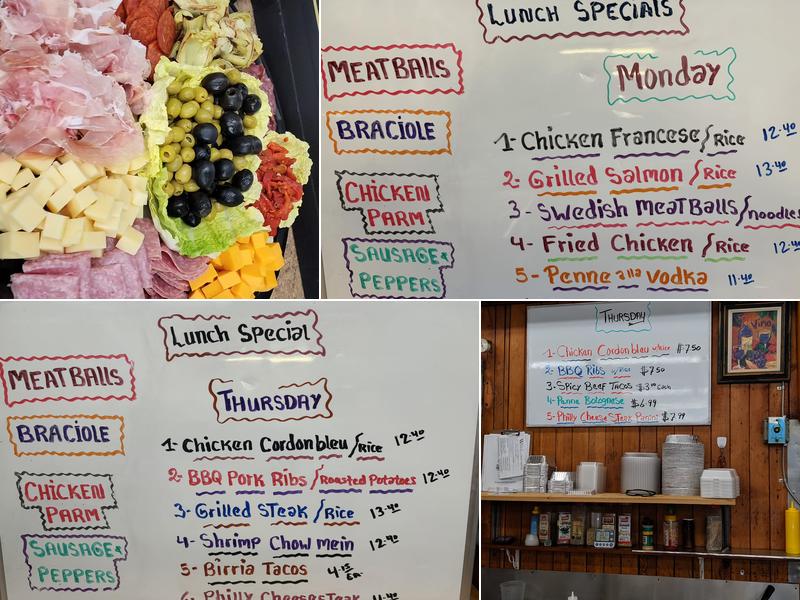 LUNCH SPECIALS
Monday
MEATBALLS
BRACiOLE
CHiCKEN
PARM
SAUSAGE &
PEPPERS
1- Chicken Francese/Rice 12.40
2- Grilled Salmon/Rice 13.40
3- Swedish MeatBalls/noodles
4- Fried Chicken/Rice 12.40
5- Penne alla vodka 11.40
Lunch Special
THURSDAY
MEATBALLS
BRACiOLE
CHiCKEN
PARM
SAUSAGE &
PEPPERS
1- Chicken Cordonbleu/Rice 12.40
2- BBQ Pork Ribs/Roasted Potatoes 12.40
3- Grilled Steak/Rice 13.40
4- Shrimp Chow mein 12.40
5- Birria Tacos 4.15 Ea.
6- Philly CheeseSTeak 11.40
THURSDAY
1- Chicken Cordonbleu w/Rice $7.50
2- BBQ Ribs w/Rice $7.50
3- Spicy Beef Tacos $3.00 each
4- Penne Bolognese $6.99
5- Philly CheeseSteak Panini $7.99
Vino